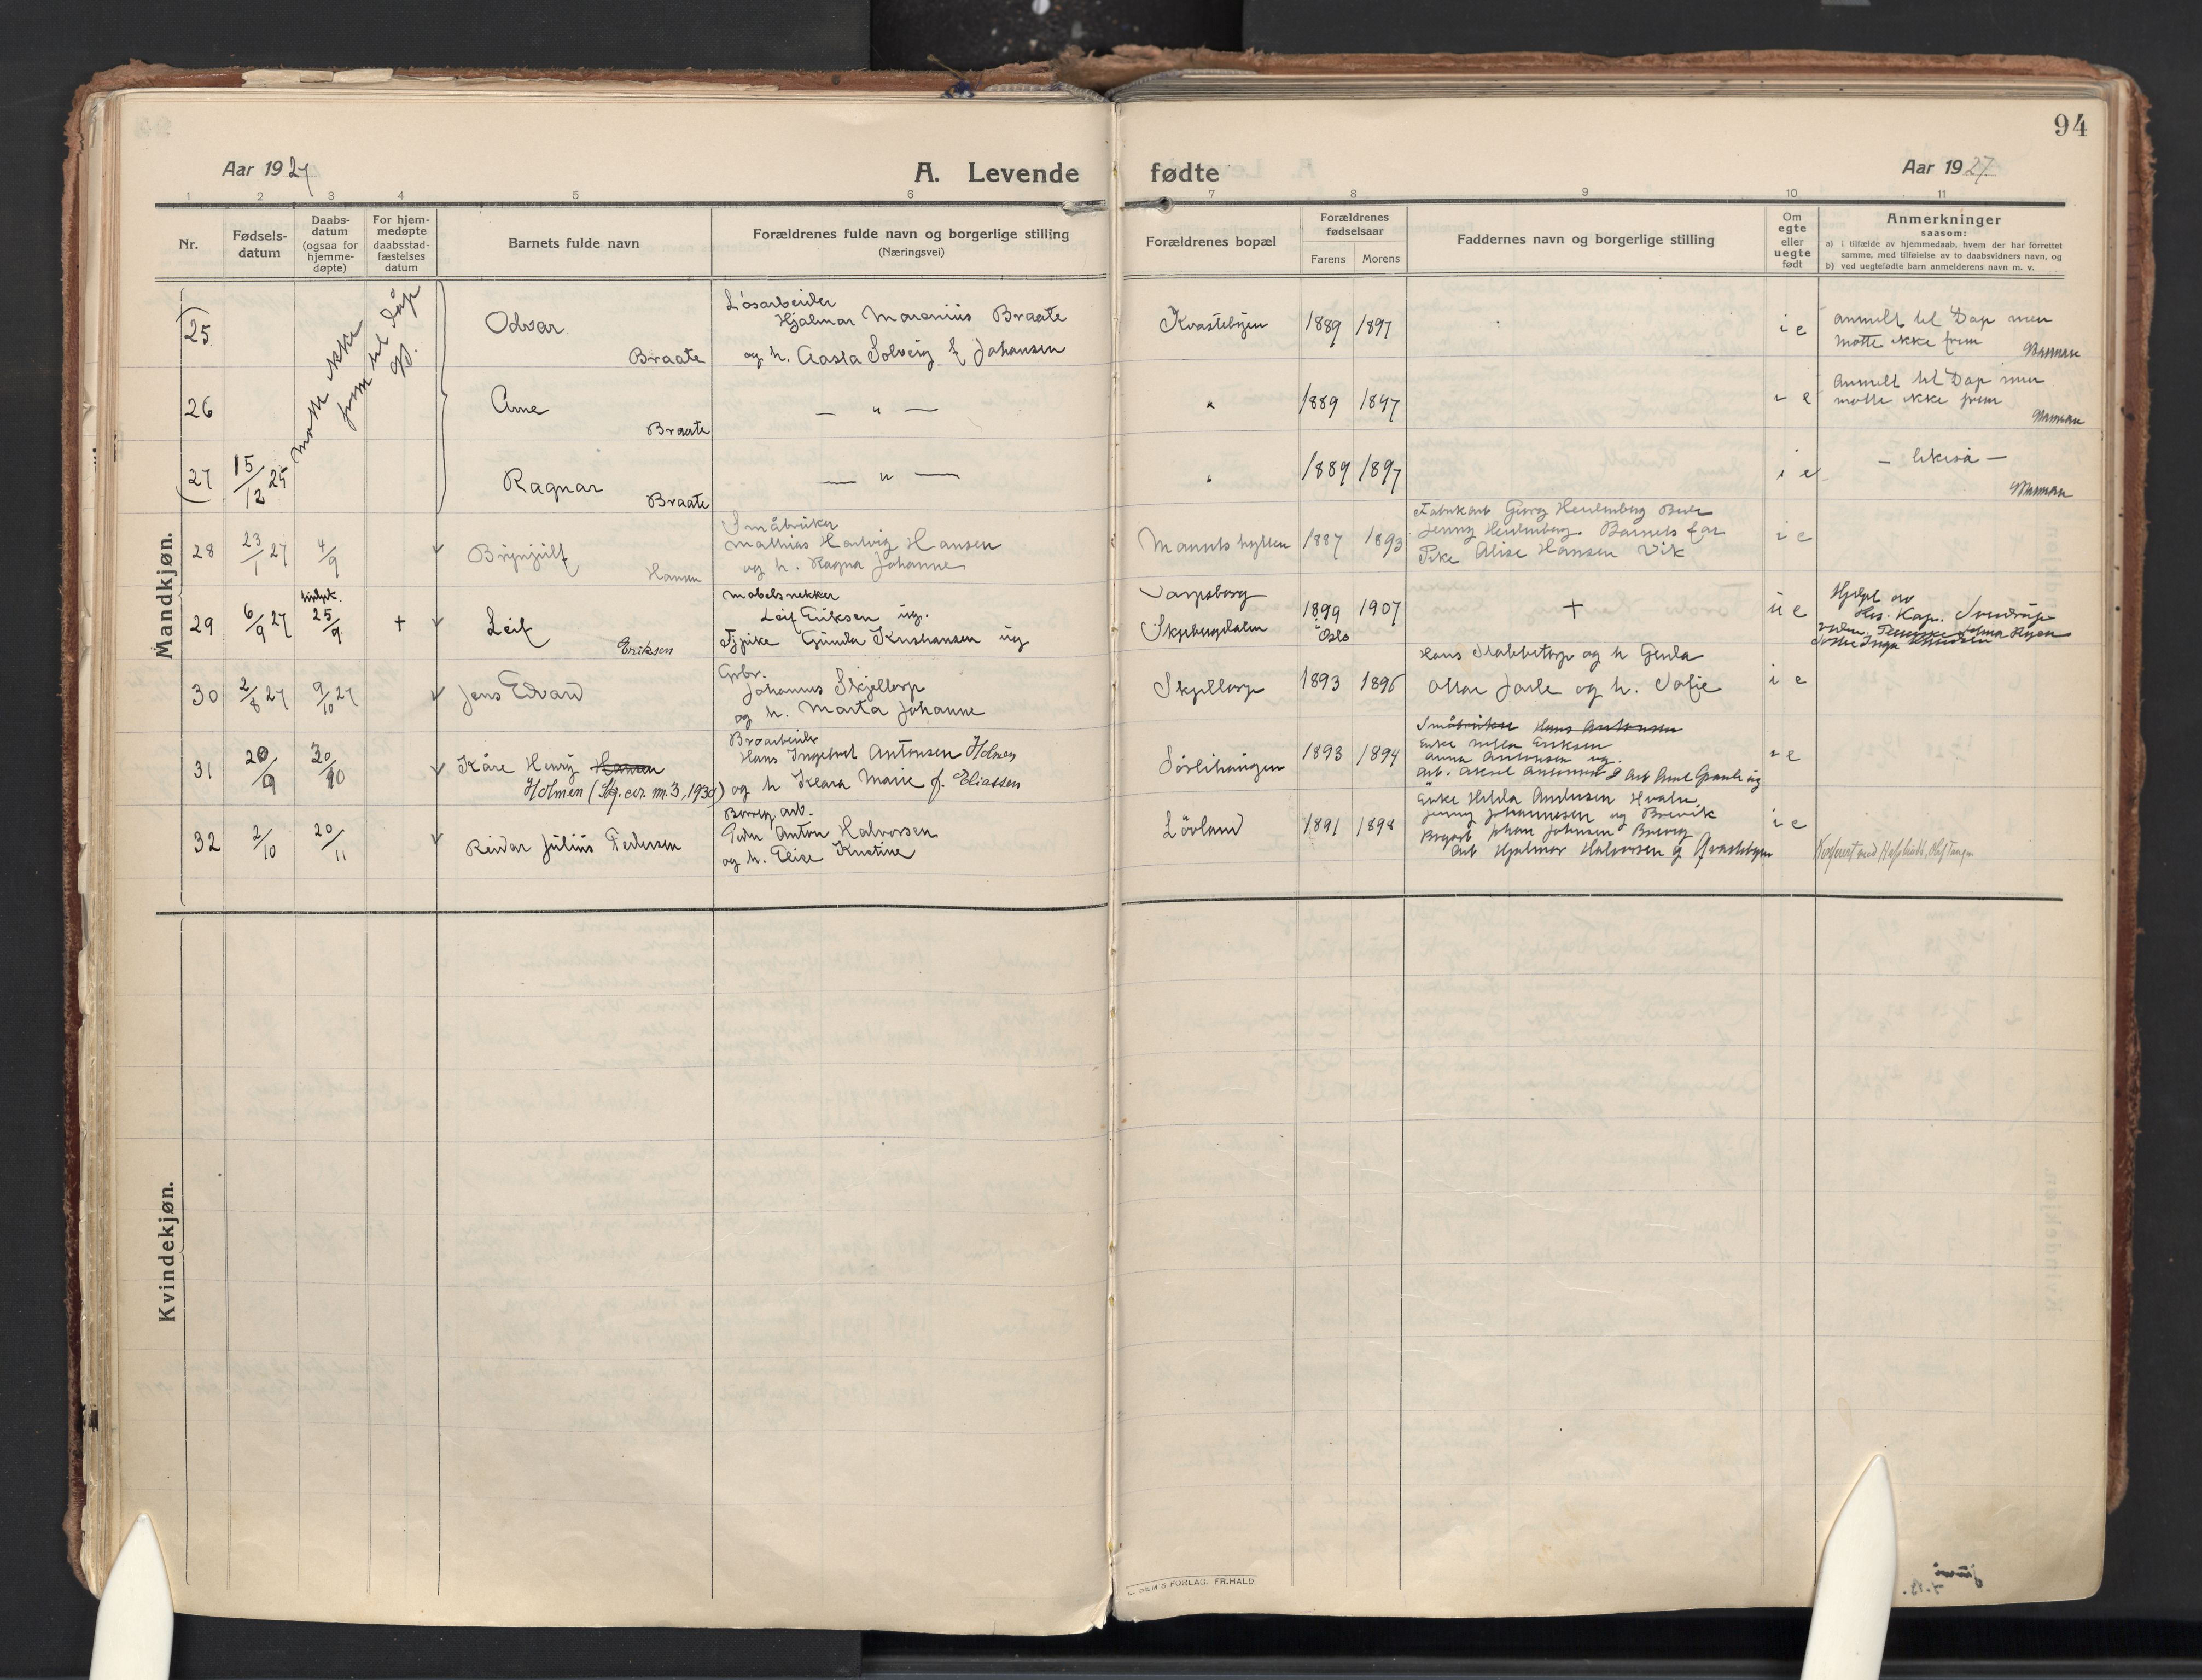 94
Aar 1927
A. Levende fødte
Aar 1927
1 2 3 4 5 6 7 8 9 10 11
Nr.
Fødsels-
datum
Daabs-
datum
(ogsaa for
hjemme-
døpte)
For hjem-
medøpte
daabsstad-
fæstelses
datum
Barnets fulde navn
Forældrenes fulde navn og borgerlige stilling
(Næringsvei)
Forældrenes bopæl
Forældrenes
fødselsaar
Farens Morens
Faddernes navn og borgerlige stilling
Om
egte
eller
uegte
født
Anmerkninger
saasom:
a) i tilfælde av hjemmedaab, hvem der har forrettet
samme, med tilføielse av to daabsvidners navn, og
b) ved uegtefødte barn anmelderens navn m. v.
Mandkjøn.
møtte ikke
frem til dåp
25
Odvar
Braate
Løsarbeider
Hjalmar Marenius Braate
og h. Aasta Solveig f Johansen
Kvastebyen
1889 1897
i e
anmelt til Dap men
møtte ikke frem
26
Arne
Braate
— " —
"
1889 1897
i e
anmelt til Dap men
møtte ikke frem
27
15/12 25
Ragnar
Braate
— " —
"
1889 1897
i e
— likeså —
28
23/1 27
4/9
Brynjulf
Hansen
Småbruker
Mathias Hartvig Hansen
og h. Ragna Johanne
1887 1893
Jenny Barnets far
Pike Alise Hansen Vik
i e
29
6/9 27
25/9
+
Leif
Eriksen
møbelsnekker
Leif Eriksen ug.
Tjpike Gunda Kristiansen ug
Sarpsborg
1899 1907
Oslo
+
u e
Hjdpt av
Res. Kap.
30
2/8 27
9/10 27
Jens Edvard
Grbr.
Johannes Skjeltorp
og h. Marta Johanne
Skjeltorp
1893 1896
Hans og h Gerda
og h. Sofie
i e
31
20/9
30/10
Kåre Henry Hansen
Holmen (Skj. evr. m. 3, 1930)
Broarbeider
Hans Ingebret Antonsen Holmen
og h Klara Marie f. Eliassen
Sørlihaugen
1893 1894
Småbruker Hans Antonsen
Enke Eriksen
Anna Antonsen ug.
i e
32
2/10
20/11
Reidar Julius Pedersen
Borreg. arb.
Peder Anton Halvorsen
og h. Elise Kristine
Løvland
1891 1898
Enke Hilda Andersen Hvaler
Jenny Johannesen ug Brevik
Johan Johnsen Borreg
Arb Hjalmar Halvorsen g
i e
Kvindekjøn.
FORLAG. FR. HALD